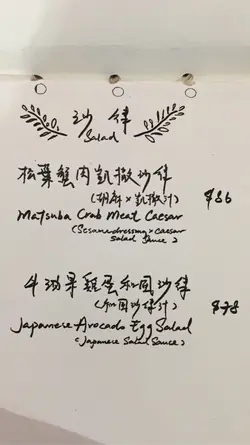 沙律
Salad
松葉蟹肉凱撒沙律
(胡麻×凱撒汁)
$86
Matsuba Crab Meat Caesar
(Sesame dressing × caesar
Salad Sauce)
牛油果雞蛋和風沙律
(和風沙律汁)
$78
Japanese Avocado Egg Salad
(Japanese Salad Sauce)